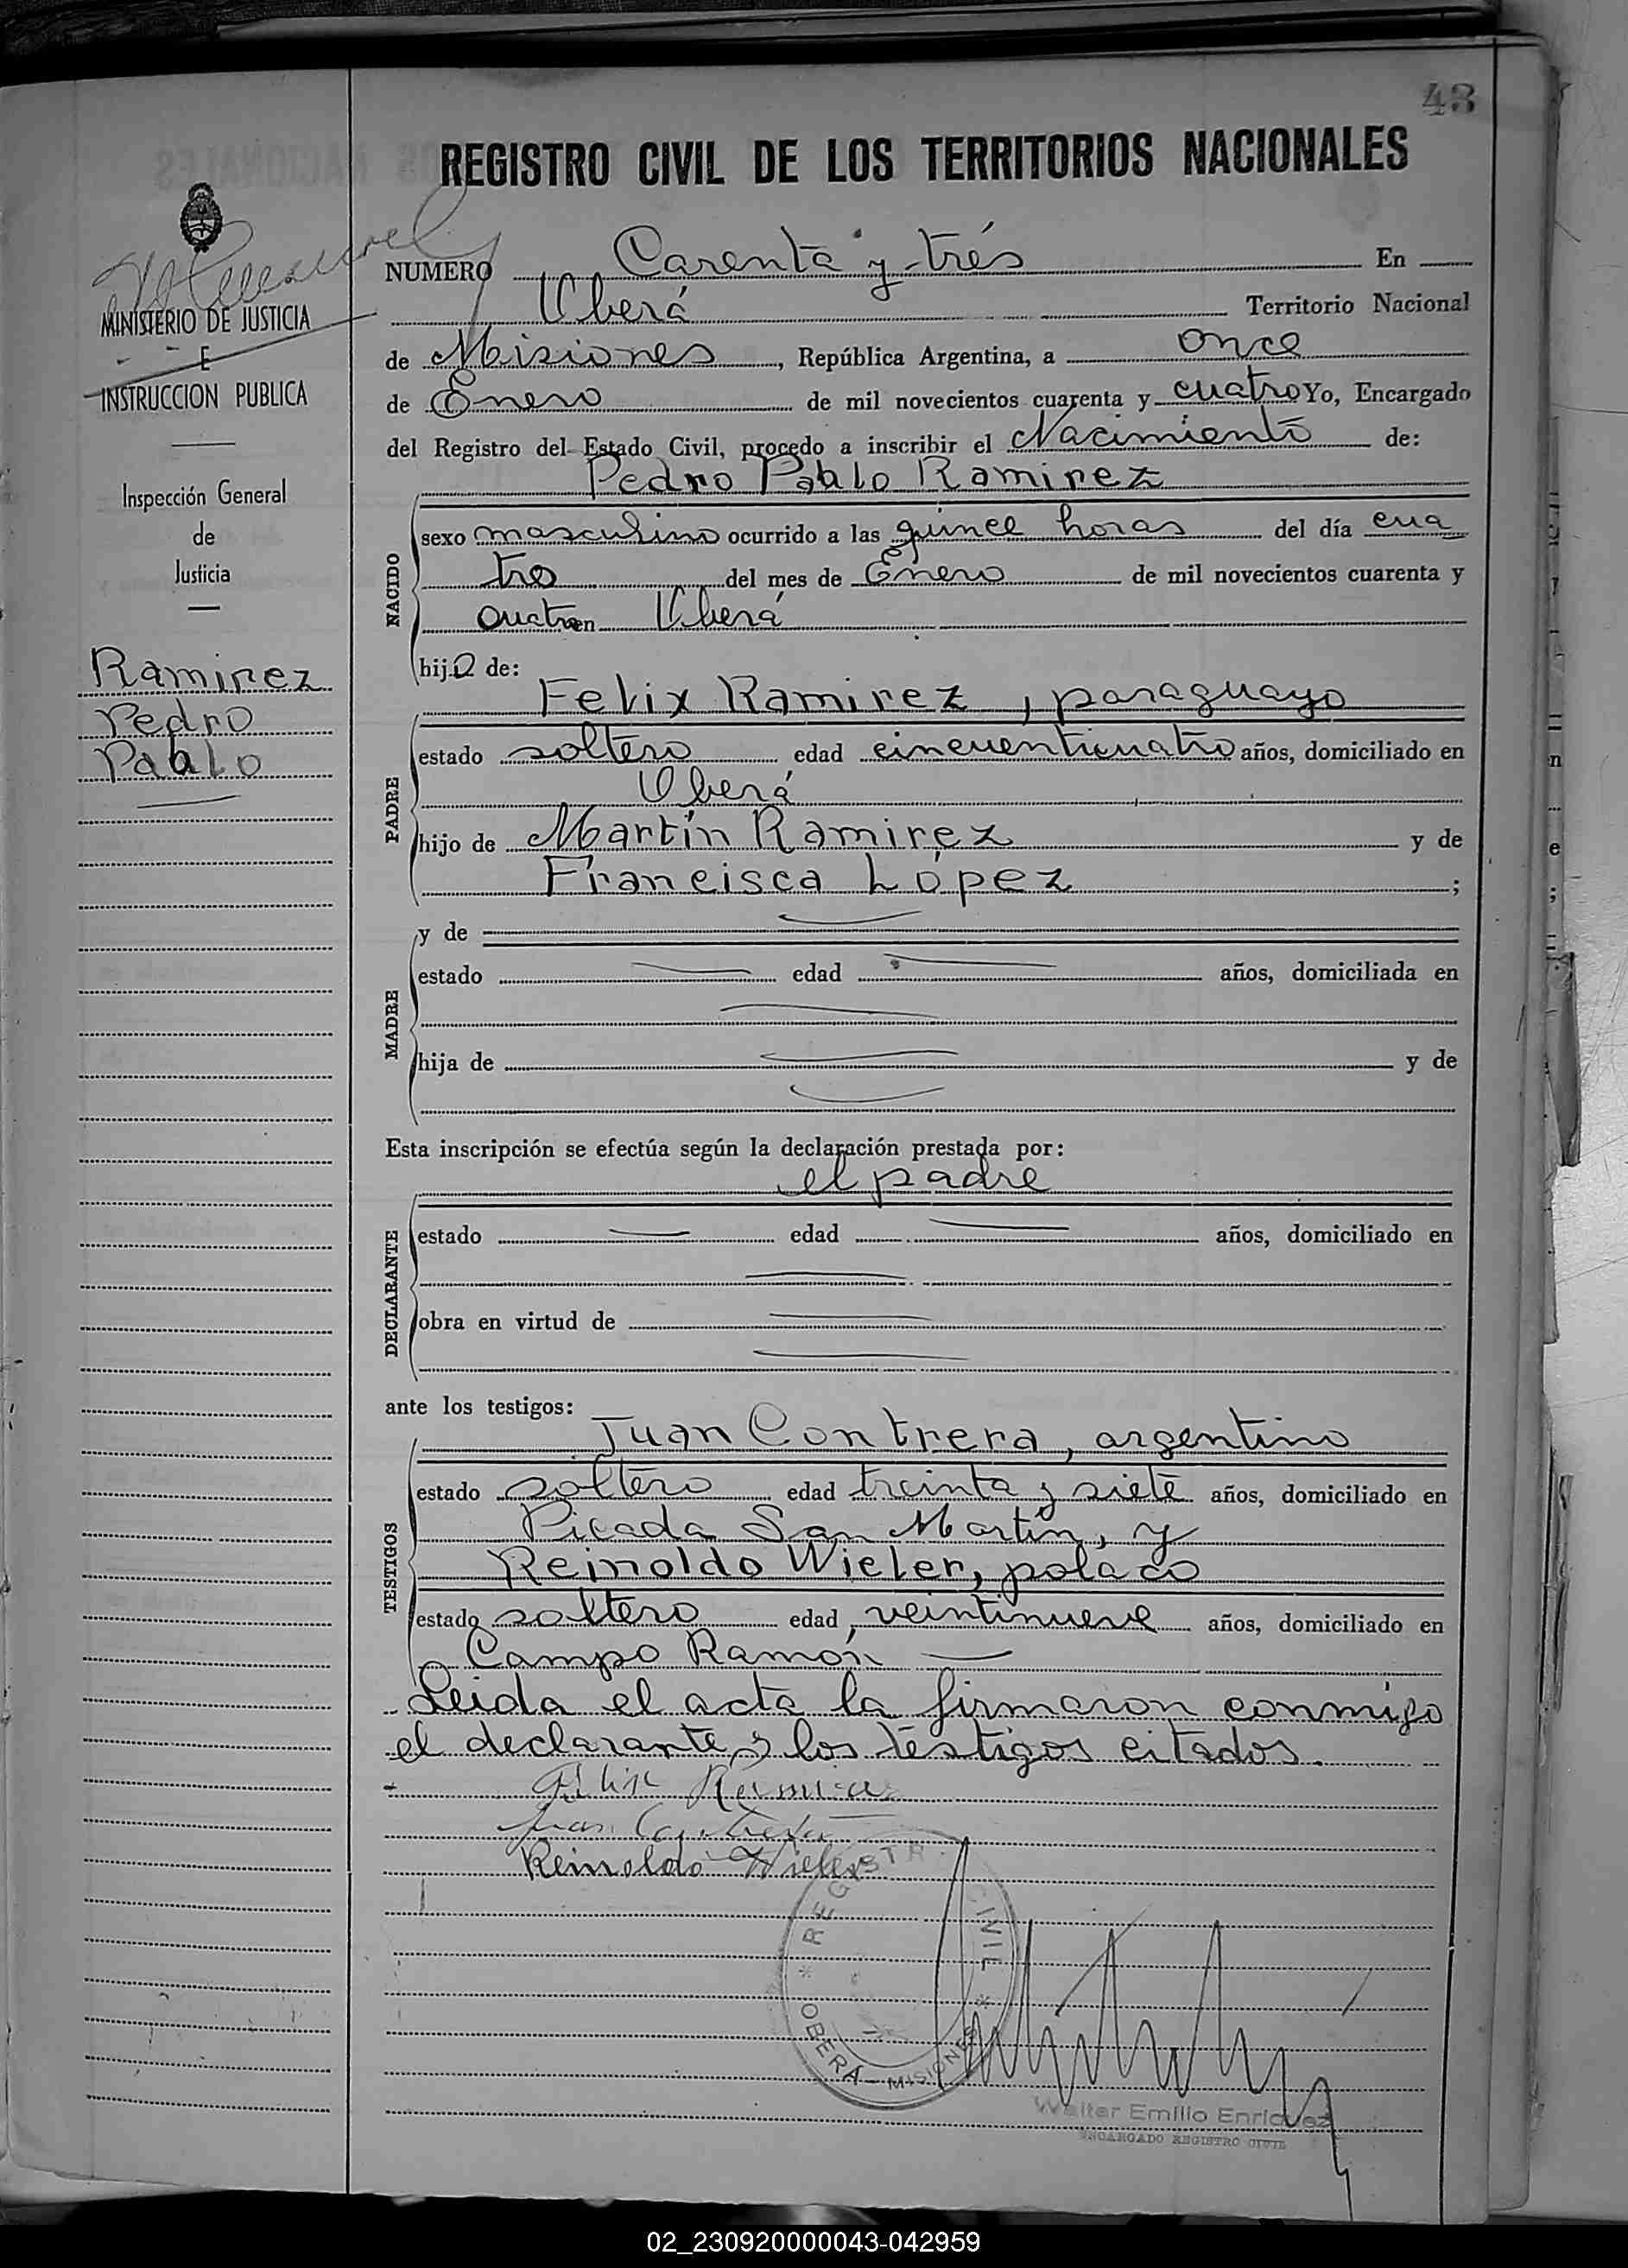 43
REGISTRO CIVIL DE LOS TERRITORIOS NACIONALES
MINISTERIO DE JUSTICIA
E
INSTRUCCION PUBLICA
Inspección General
de
Justicia
Ramirez
Pedro
Pablo
NUMERO Carenta y trés En
Oberá Territorio Nacional
de Misiones, República Argentina, a once
de Enero de mil novecientos cuarenta y cuatro Yo, Encargado
del Registro del Estado Civil, procedo a inscribir el Nacimiento de:
Pedro Pablo Ramirez
NACIDO
sexo masculino ocurrido a las quince horas del día cua
tro del mes de Enero de mil novecientos cuarenta y
cuatro en Oberá
hijo de:
Felix Ramirez, paraguayo
PADRE
estado soltero edad cincuenticuatro años, domiciliado en
Oberá
hijo de Martín Ramirez y de
Francisca López ;
MADRE
y de
estado edad años, domiciliada en
hija de y de
Esta inscripción se efectúa según la declaración prestada por:
el padre
DECLARANTE
estado edad años, domiciliado en
obra en virtud de
ante los testigos:
Juan Contrera, argentino
TESTIGOS
estado soltero edad treinta y siete años, domiciliado en
Picada San Martín, y
Reinoldo Wieler, polaco
estado soltero edad, veintinueve años, domiciliado en
Campo Ramón
Leida el acta la firmaron conmigo
el declarante y los testigos citados.
Felix Ramirez
Juan Contrera
Reinoldo Wieler
REGISTRO CIVIL
OBERA - MISIONES
Walter Emilio Enriquez
ENCARGADO REGISTRO CIVIL
02_230920000043-042959